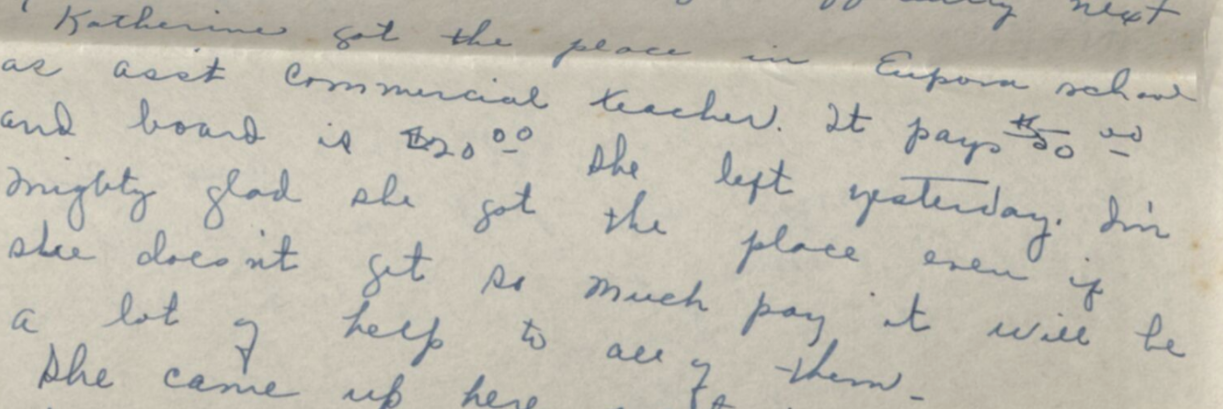 next
Katherine got the place in Eupora school
as asst Commercial teacher. It pays $50 00
and board is $20 00 She left yesterday. I'm
mighty glad she got the place even if
she doesn't get so much pay it will be
a lot of help to all of them.
She came up here